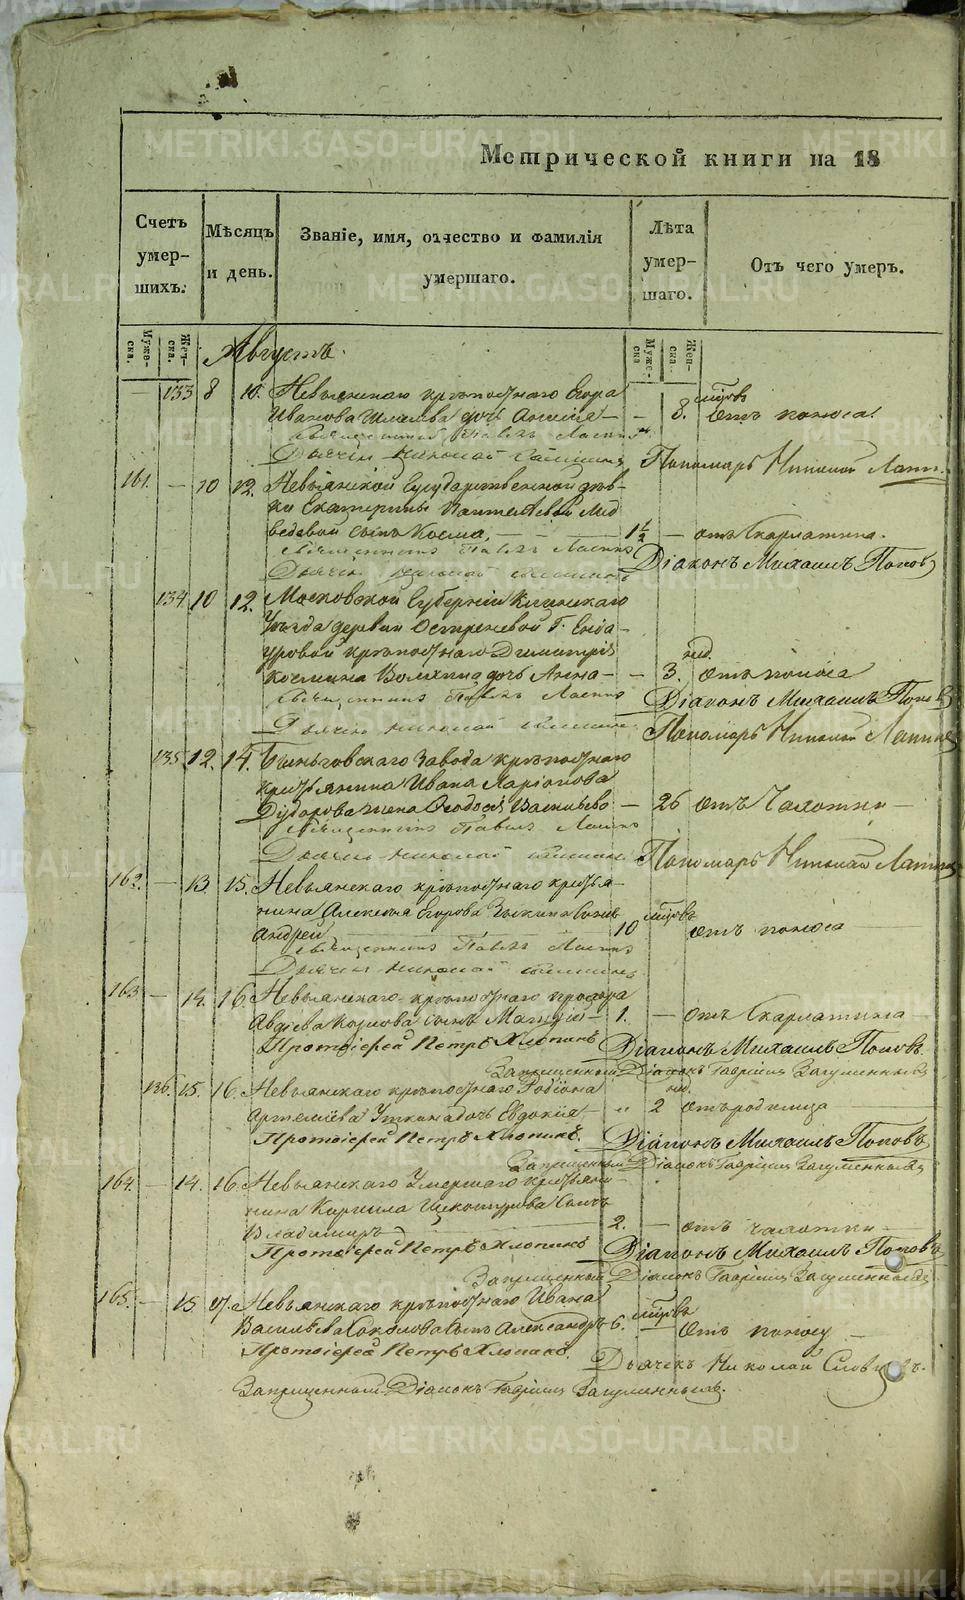 Метрической книги на 18
Счетъ умер-шихъ.
Мѣсяцъ и день.
Званіе, имя, отчество и фамилія умершаго.
Лѣта умер-шаго.
Отъ чего умеръ.
Муже-ска.
Жен-ска.
Муже-ска
Жен-ска.
Августъ.
— 133 8 10. Невьянскаго крѣпостнаго Егора
Иванова дочь — — 8. мцовъ отъ поноса.
Священникъ Павелъ
Дьячекъ Николай
Пономарь Николай
161. — 10 12. Невьянской Государственной дѣв-
ки Екатерины Мед
ведевой сынъ Косма, — 1½ — отъ Скарлатина.
Священникъ Павелъ
Дьячекъ Николай
Діаконъ Михаилъ Поповъ
134 10 12. Московской Губерніи Клинскаго
Уѣзда деревни Г.
крѣпостнаго Димитрія
Космина дочь Анна — — 3. нед. отъ поноса
Священникъ Павелъ
Діаконъ Михаилъ Поповъ
Дьячекъ Николай
Пономарь Николай
135 12. 14. Быньговскаго Завода крѣпостнаго
крестьянина Ивана Ларіонова
Дударова жена Феодосія Васильева — 26 отъ Чахотки —
Священникъ Павелъ
Дьячекъ Николай
Пономарь Николай
162. — 13. 15. Невьянскаго крѣпостнаго крестья-
нина Алексѣя Егорова Сынъ
Андрей 10 мцовъ отъ поноса
Священникъ Павелъ
Дьячекъ Николай
163 — 14. 16 Невьянскаго крѣпостнаго
Авдіева Козлова сынъ — 1. — отъ Скарлатина
Протоіерей Петръ Хлопинъ
Діаконъ Михаилъ Поповъ.
Запрещенный Діаконъ Гавріилъ Загуменныхъ
136. 15. 16. Невьянскаго крѣпостнаго Родіона
Артеміева Уткина дочь Евдокія — „ 2 нед. отъ родимца
Протоіерей Петръ Хлопинъ.
Діаконъ Михаилъ Поповъ
Запрещенный Діаконъ Гавріилъ Загуменныхъ
164. — 14. 16. Невьянскаго Умершаго крестьяни-
нина Кирилла Сынъ
Владимиръ 2. — отъ чахотки —
Протоіерей Петръ Хлопинъ
Діаконъ Михаилъ Поповъ
Запрещенный Діаконъ Гавріилъ Загуменныхъ
165. — 15 17. Невьянскаго крѣпостнаго Ивана
Васильева Соколова Сынъ Александръ — 6. мцовъ — отъ поносу —
Протоіерей Петръ Хлопинъ.
Дьячекъ Николай Словцовъ.
Запрещенный Діаконъ Гавріилъ Загуменныхъ.
METRIKI.GASO-URAL.RU